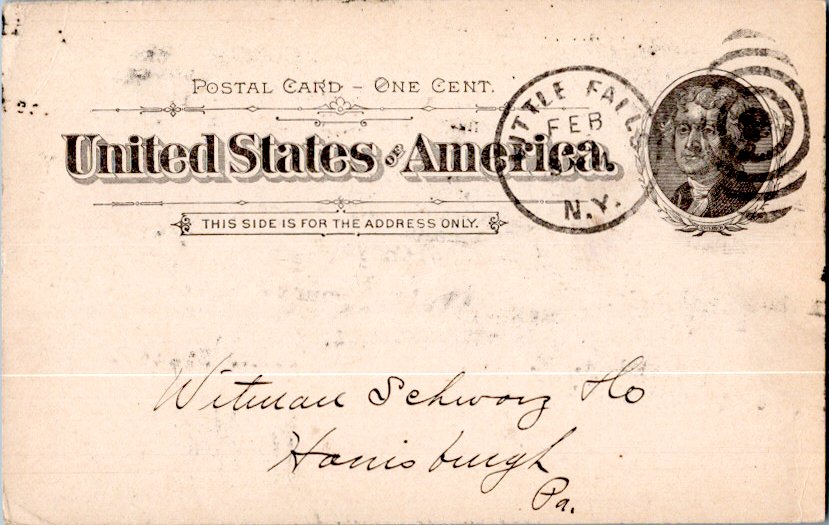 POSTAL CARD – ONE CENT.
United States OF America.
THIS SIDE IS FOR THE ADDRESS ONLY.
LITTLE FALLS
FEB
N.Y.
Witman Schwarz Ho
Harrisburgh
Pa.